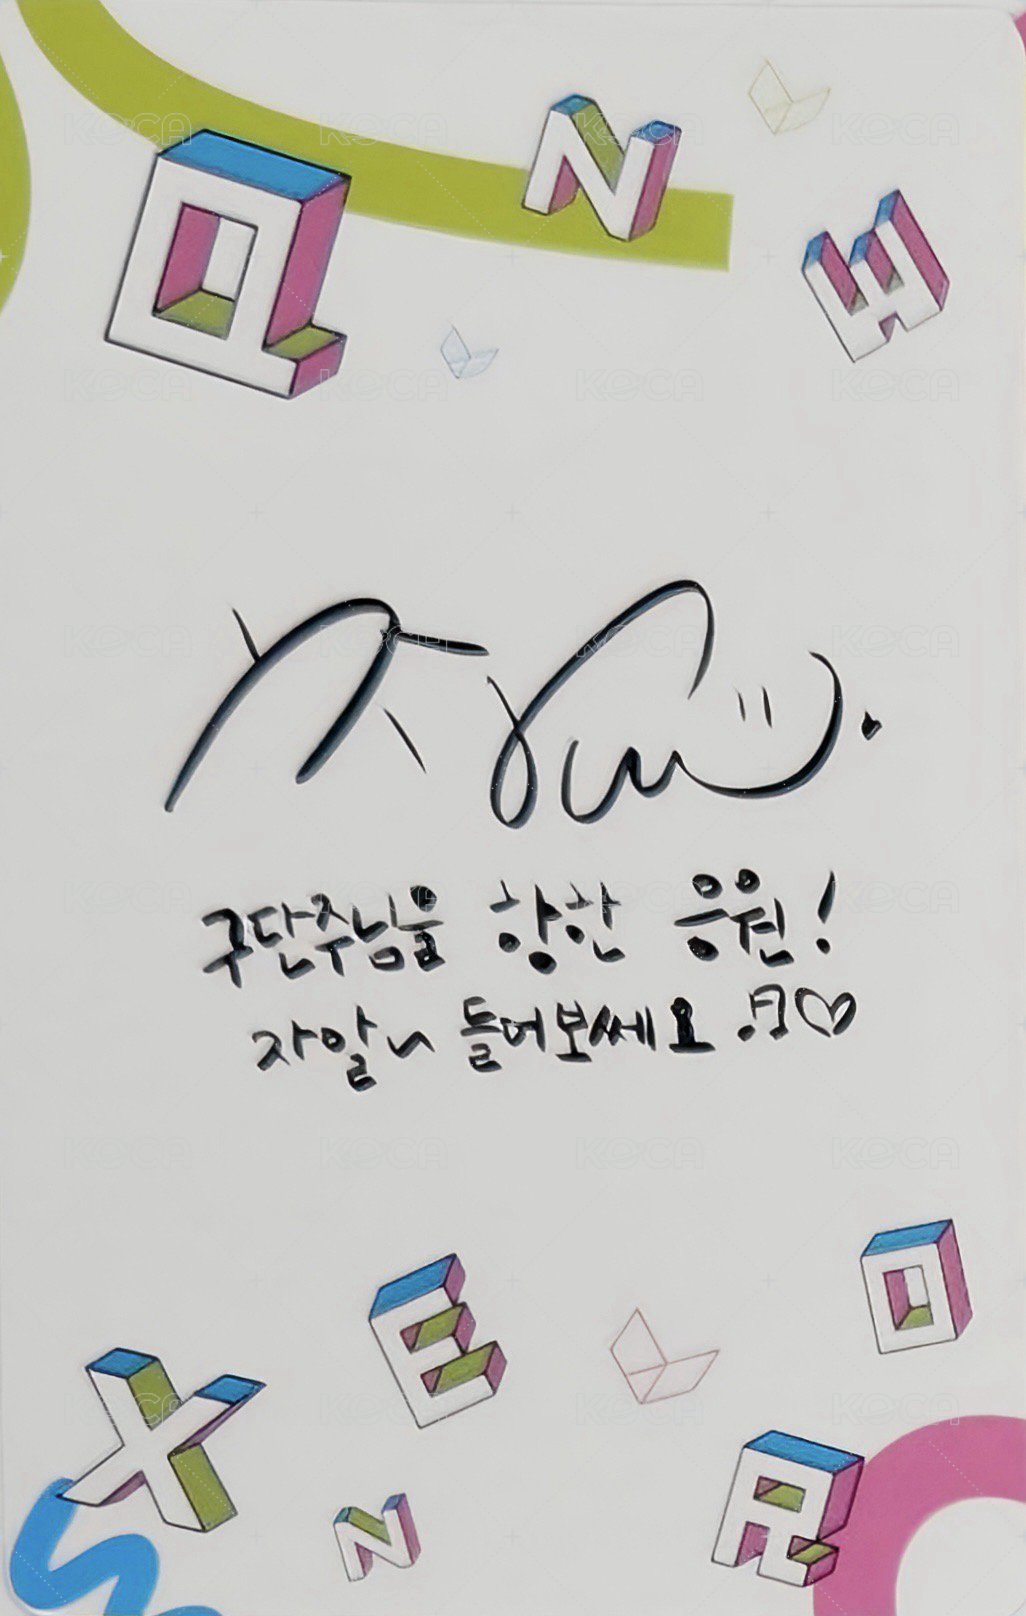 Q N W
구단주님을 향한 응원!
자알~ 들어보쎄요 ♬♡
E O
X N R